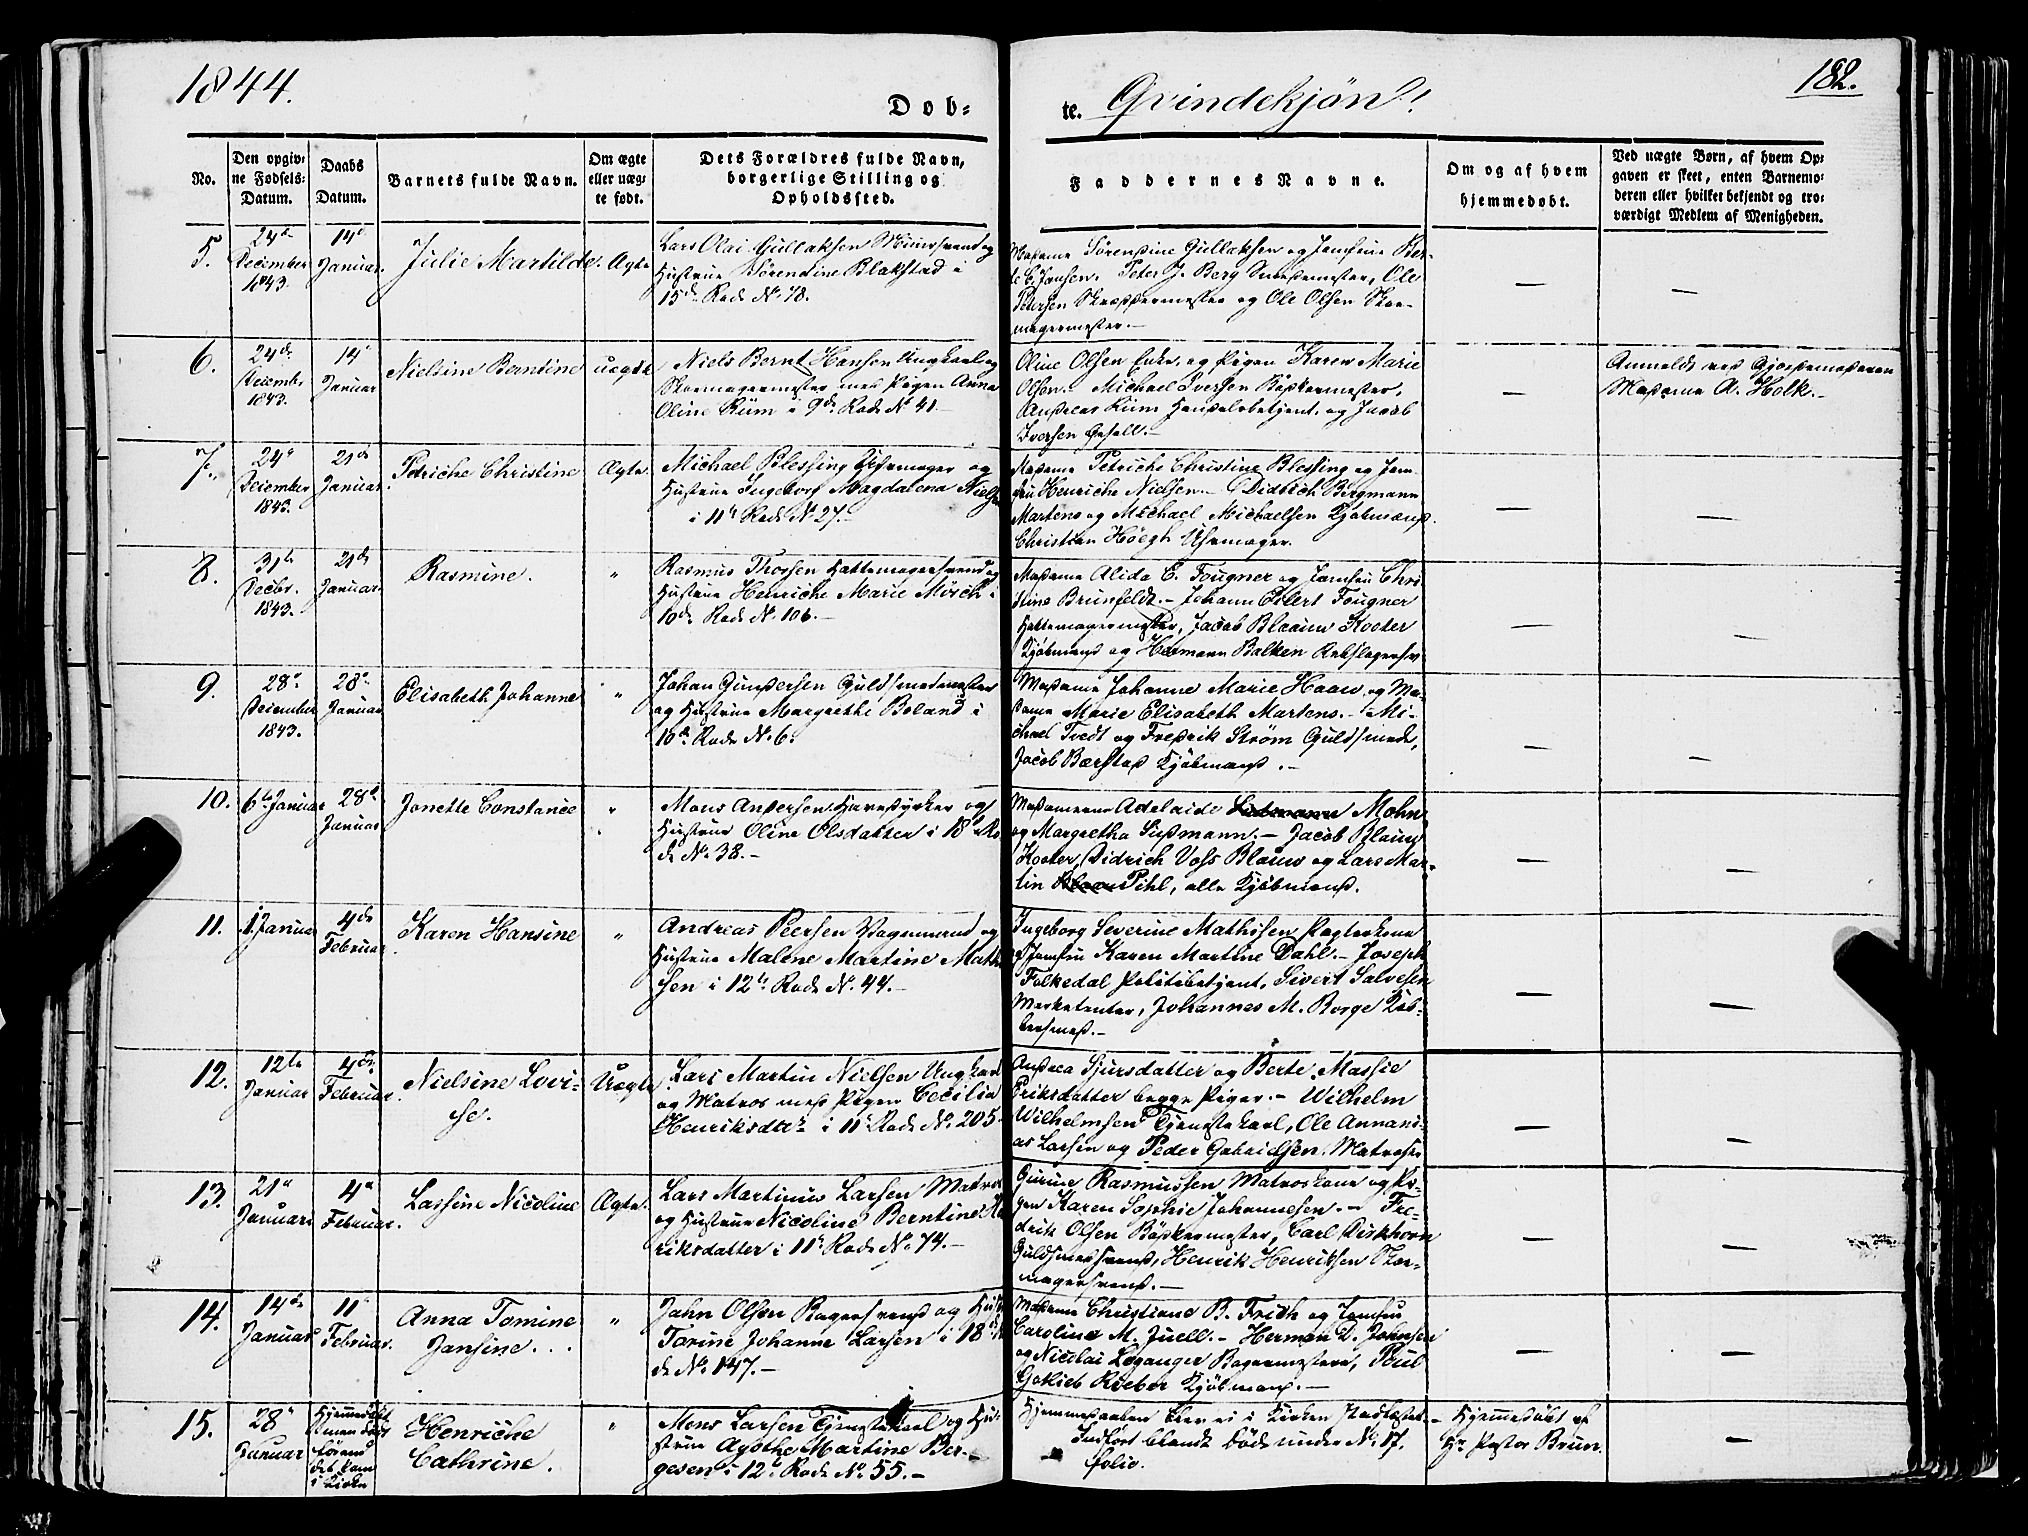 1844.
Døb-
te. Qvindekjøn!
182.
No.
Den opgiv-
ne Fødsels-
Datum.
Daabs
Datum.
Barnets fulde Navn.
Om ægte
eller uæg-
te født.
Dets Forældres fulde Navn,
borgerlige Stilling og
Opholdssted.
Faddernes Navne.
Om og af hvem
hjemmedøbt.
Ved uægte Børn, af hvem Op-
gaven er skeet, enten Barnemo-
deren eller hvilket bekjendt og tro-
værdigt Medlem af Menigheden.
5.
24de
December
1843.
14de
Januar.
Julie Martilde.
Ægte
Lars Olai Gullaksen Muursvend og
Hustrue Sørendine Blakstad i
15de Rode No. 78.
Madame Sørensine Gullaksen og Jomfrue Ber-
te C. Jansen. Peter J. Berg Snedkermester, Ole
Petersen Skræddermester og Ole Olsen Skoe-
magermester.-
—
—
6.
24de
Decembr
1843.
14
Januar
Nielsine Berntine
uægte
Niels Bernt Hansen Ungkarl og
Skoemagermester med Pigen Anna
Oline Rüm i 9de Rode No 41.-
Oline Olsen Enke, og Pigen Karen Marie
Olsen. Michael Iversen Bødkermester,
Andreas Rüm Handelsbetjent, og Jacob
Iversen Gesell.-
—
Anmeldt ved Gjordemoderen
Madame A. Holk.-
7.
24
December
1843.
21de
Januar
Petriche Christine
Ægte.
Michael Blessing Uhrmager og
Hustrue Ingeborg Magdalena Niels
i 11te Rode No 27.-
Madame Petriche Christine Blessing og Jom-
fru Henriche Nielsen.- Didrich Bergmann
Martens og Michael Michaelsen Kjøbmænd.
Christian Höegh Uhrmager.
—
—
8.
31te
Decbr.
1843.
21de
Januar.
Rasmine.
"
Rasmus Thorsen Hattemagersvend og
Hustrue Henriche Marie Mörch i
10de Rode No. 106.-
Madame Alida C. Fougner og Jomfru Chri
stine Brunfeldt.- Johann Eilert Fougner
Hattemagermester, Jacob Blaauw Kooter
Kjøbmand og Hermann Balken Rebslagersv:
—
—
9.
28
December
1843.
28
Januar
Elisabeth Johanne
"
Johan Gundersen Guldsmedmester
og Hustrue Margrethe Boland i
10de Rode No. 6.
Madame Johanne Marie Haaw og Ma-
dame Marie Elisabeth Martens.- Mi-
chael Tvedt og Fredrik Strøm Guldsmede,
Jacob Børstad Kjøbmand.-
—
—
10.
6te Januar
28de
Januar
Jonette Constance
"
Mons Andersen Havedyrker og
Hustrue Oline Olsdatter i 18de Ro
de No. 38.-
Madamerne Adelaide Mohn
og Margretha Susmann.- Jacob Blauw
Kooter, Didrich Voss Blauw og Lars Mar-
tin Pihl, alle Kjøbmænd.
—
—
11.
1 Januar
4de
Februar
Karen Hansine
"
Andreas Peersen Vognmand og
Hustrue Malene Martine Math
sen i 12te Rode No. 44.-
Ingeborg Severine Mathisen
og Jomfru Karen Martine Dahl.- Joseph
Folkedal Politibetjent, Sivert Salvesen
Marketenter, Johannes M. Borge Kob-
bersmed.-
—
—
12.
12te
Januar
4de
Februar
Nielsine Lovi-
se.
Uægte
Lars Martin Nielsen Ungkarl
og Matros med Pigen Cecilia
Henriksdtr i 11te Rode No. 205
Andrea Sjursdatter og Berte Massie
Eriksdatter begge Piger.- Wilhelm
Wilhelmsen Tjenestekarl, Ole Annani-
as Larsen og Peder Gabrielsen Matroser
—
—
13.
21
Januar
4
Februar.
Lassine Nicoline
Ægte.
Lars Martinus Larsen Matros
og Hustrue Nicoline Berntine He
riksdatter i 11te Rode No. 74.-
Gurine Rasmussen Matroskone og Pi-
gen Karen Sophie Johannesen.- Fre-
drik Olsen Bødkermester, Carl Dirkhorn
Guldsmedsvend, Henrik Henriksen Skoe-
magersvend.-
—
—
14.
14de
Januar
11
Februar.
Anna Tomine
Jansine.
"
Jahn Olsen Bagersvend og Hust
Torine Johanne Larsen i 18de Ro
de No. 147.-
Madame Christiane B. Frith og Jomfru
Caroline M. Juell.- Herman D. Johnsen
og Nicolai Leganger Bagermestere, Poul
Gotlieb Rieber Kjøbmand.-
—
—
15.
28
Januar
Hjemmedøbt
men død
førend
det kom
i Kirke
Henriche
Cathrine.
"
Mons Larsen Tjenestekarl og Hu-
strue Agothe Martine Bor-
gesen i 12te Rode No. 55.-
Hjemmedaaben blev ei i Kirken stadfæstet.-
Indført blandt døde under No. 17.
folio.
Hjemmedøbt af
Hr. Pastor Brun.
—